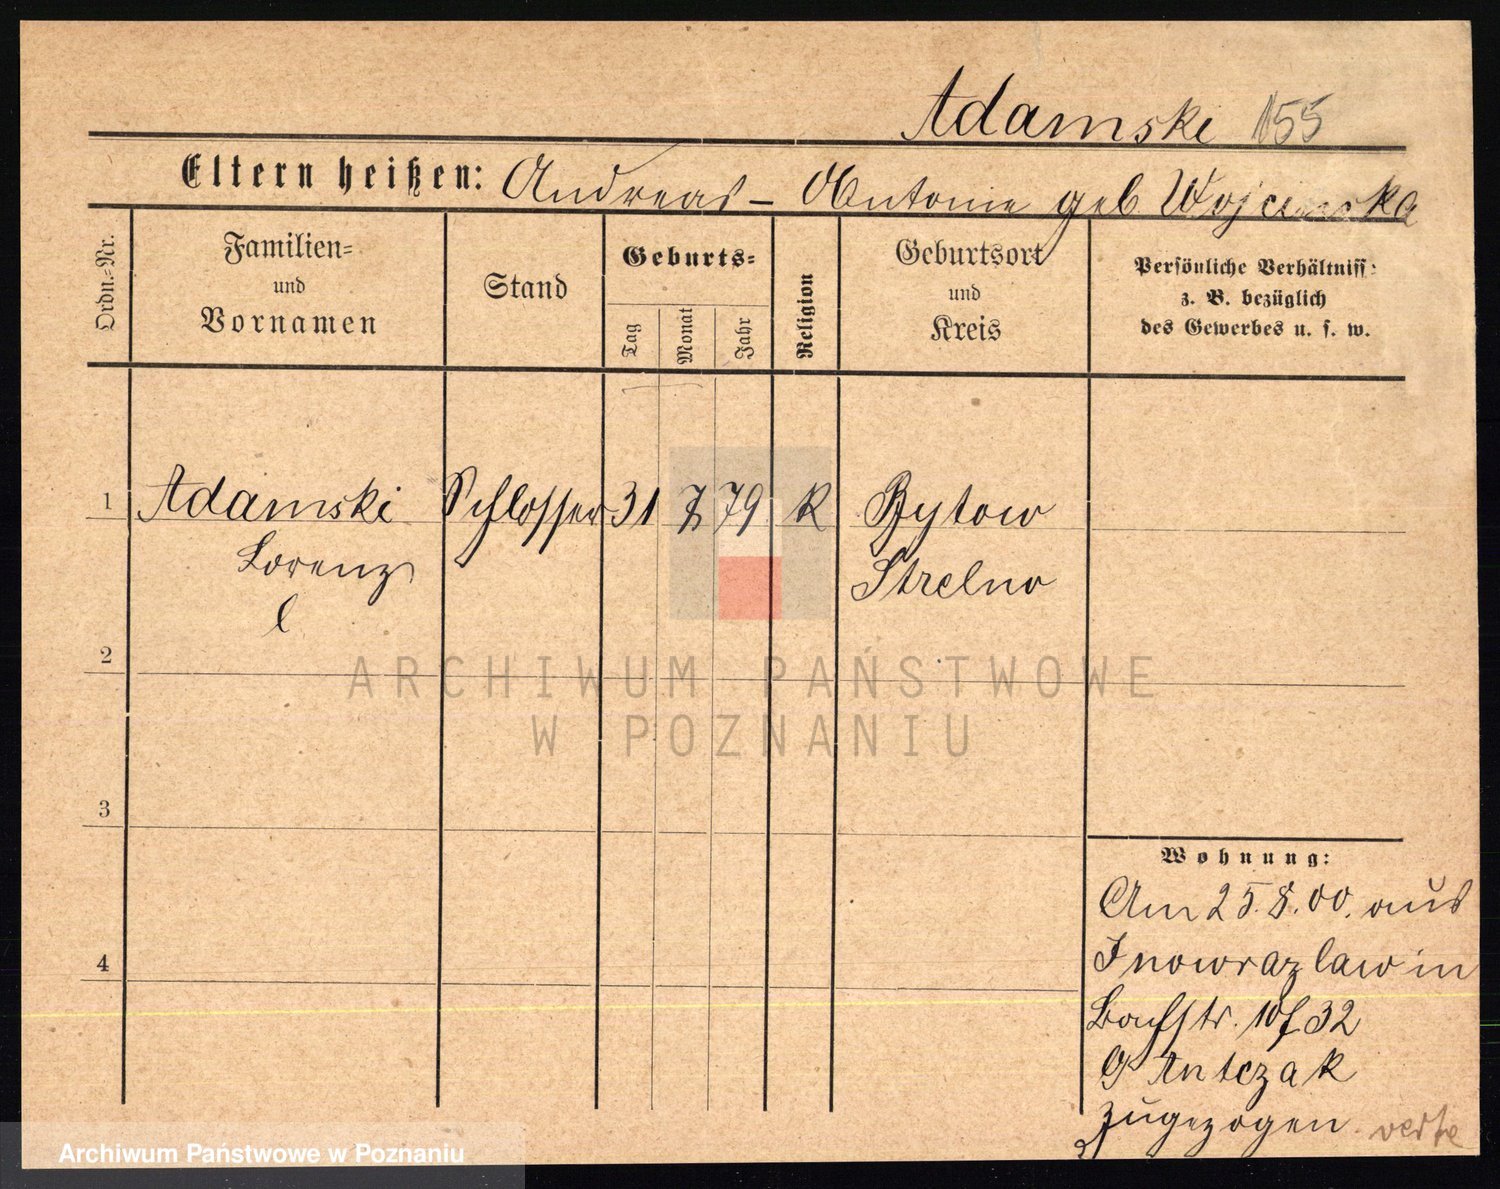 Adamski 155
Eltern heißen: Andreas – Antonie geb Wojcinska
Ordn.-Nr.
Familien=
und
Vornamen
Stand
Geburts=
Tag
Monat
Jahr
Religion
Geburtsort
und
Kreis
Persönliche Verhältniss:
z. B. bezüglich
des Gewerbes u. s. w.
1 Adamski Schlosser 31 7 79 K Bytow
Lorenz Strelno
l
2
3
4
Wohnung:
Am 25.8.00. aus
Inowrazlaw in
32
Antczak
zugezogen verte
ARCHIWUM PAŃSTWOWE
W POZNANIU
Archiwum Państwowe w Poznaniu